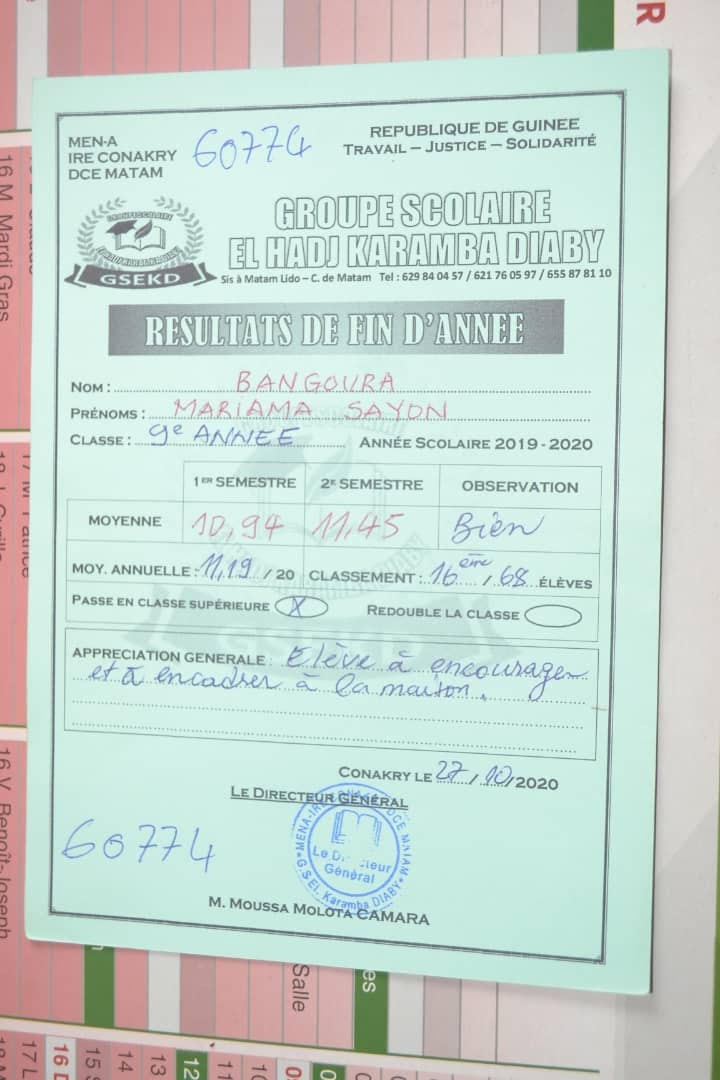 MEN-A
IRE CONAKRY
DCE MATAM
60774
REPUBLIQUE DE GUINEE
TRAVAIL – JUSTICE – SOLIDARITÉ
GROUPE SCOLAIRE
EL HADJ KARAMBA DIABY
GROUPE SCOLAIRE
GSEKD
Sis à Matam Lido – C. de Matam Tel : 629 84 04 57 / 621 76 05 97 / 655 87 81 10
RESULTATS DE FIN D'ANNEE
NOM : BANGOURA
PRÉNOMS : MARIAMA SAYON
CLASSE : 9e ANNEE ANNÉE SCOLAIRE 2019 - 2020
1ER SEMESTRE 2E SEMESTRE OBSERVATION
MOYENNE 10,94 11,45 Bien
MOY. ANNUELLE : 11,19 / 20 CLASSEMENT : 16ème / 68 ÉLÈVES
PASSE EN CLASSE SUPÉRIEURE X REDOUBLE LA CLASSE
APPRECIATION GENERALE : Elève à encourager
et à encadrer à la maison.
CONAKRY LE 27 / 10 /2020
LE DIRECTEUR GÉNÉRAL
60774
Général
G.S.El. Karamba DIABY
M. MOUSSA MOLOTA CAMARA
16 M Mardi Gras
Salle
17 L
15
14
13
12
11
10
R